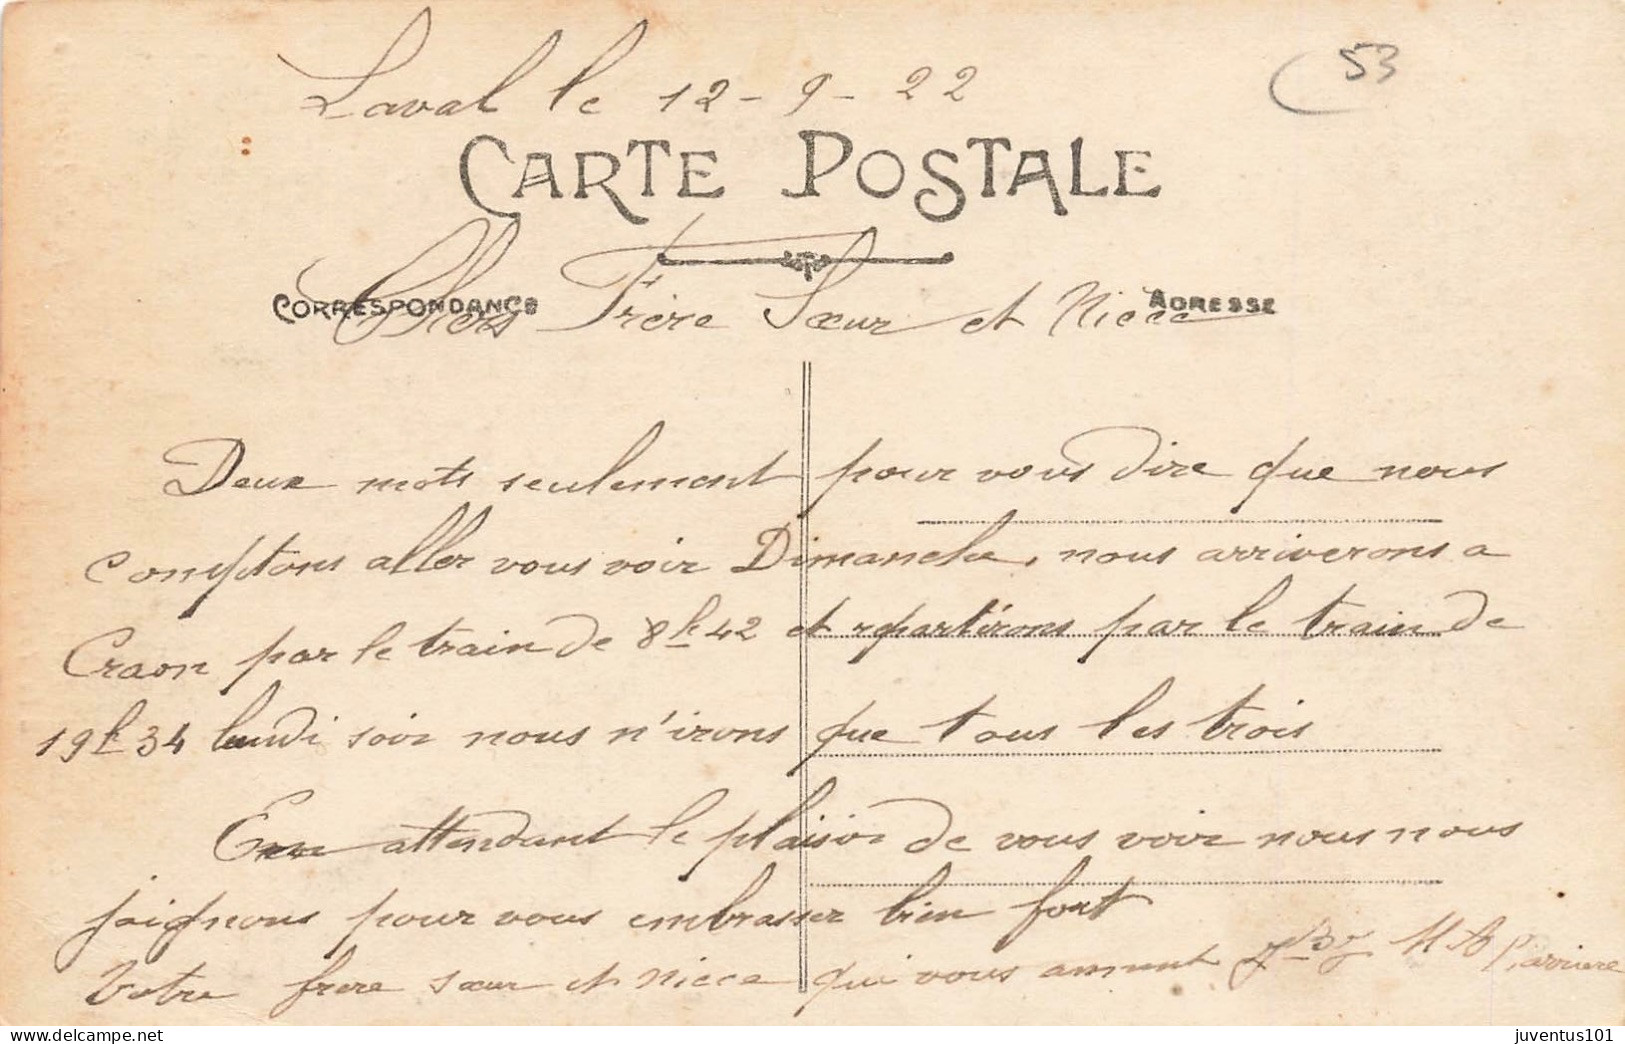 53
Laval le 12-9-22
CARTE POSTALE
CORRESPONDANCE
ADRESSE
Chers Frère Sœur et Nièce
Deux mots seulement pour vous dire que nous
comptons aller vous voir Dimanche, nous arriverons a
Craon par le train de 8h42 et repartirons par le train de
19h34 lundi soir nous n'irons que tous les trois
En attendant le plaisir de vous voir nous nous
joignons pour vous embrasser bien fort
Votre frère sœur et nièce qui vous aiment
juventus101